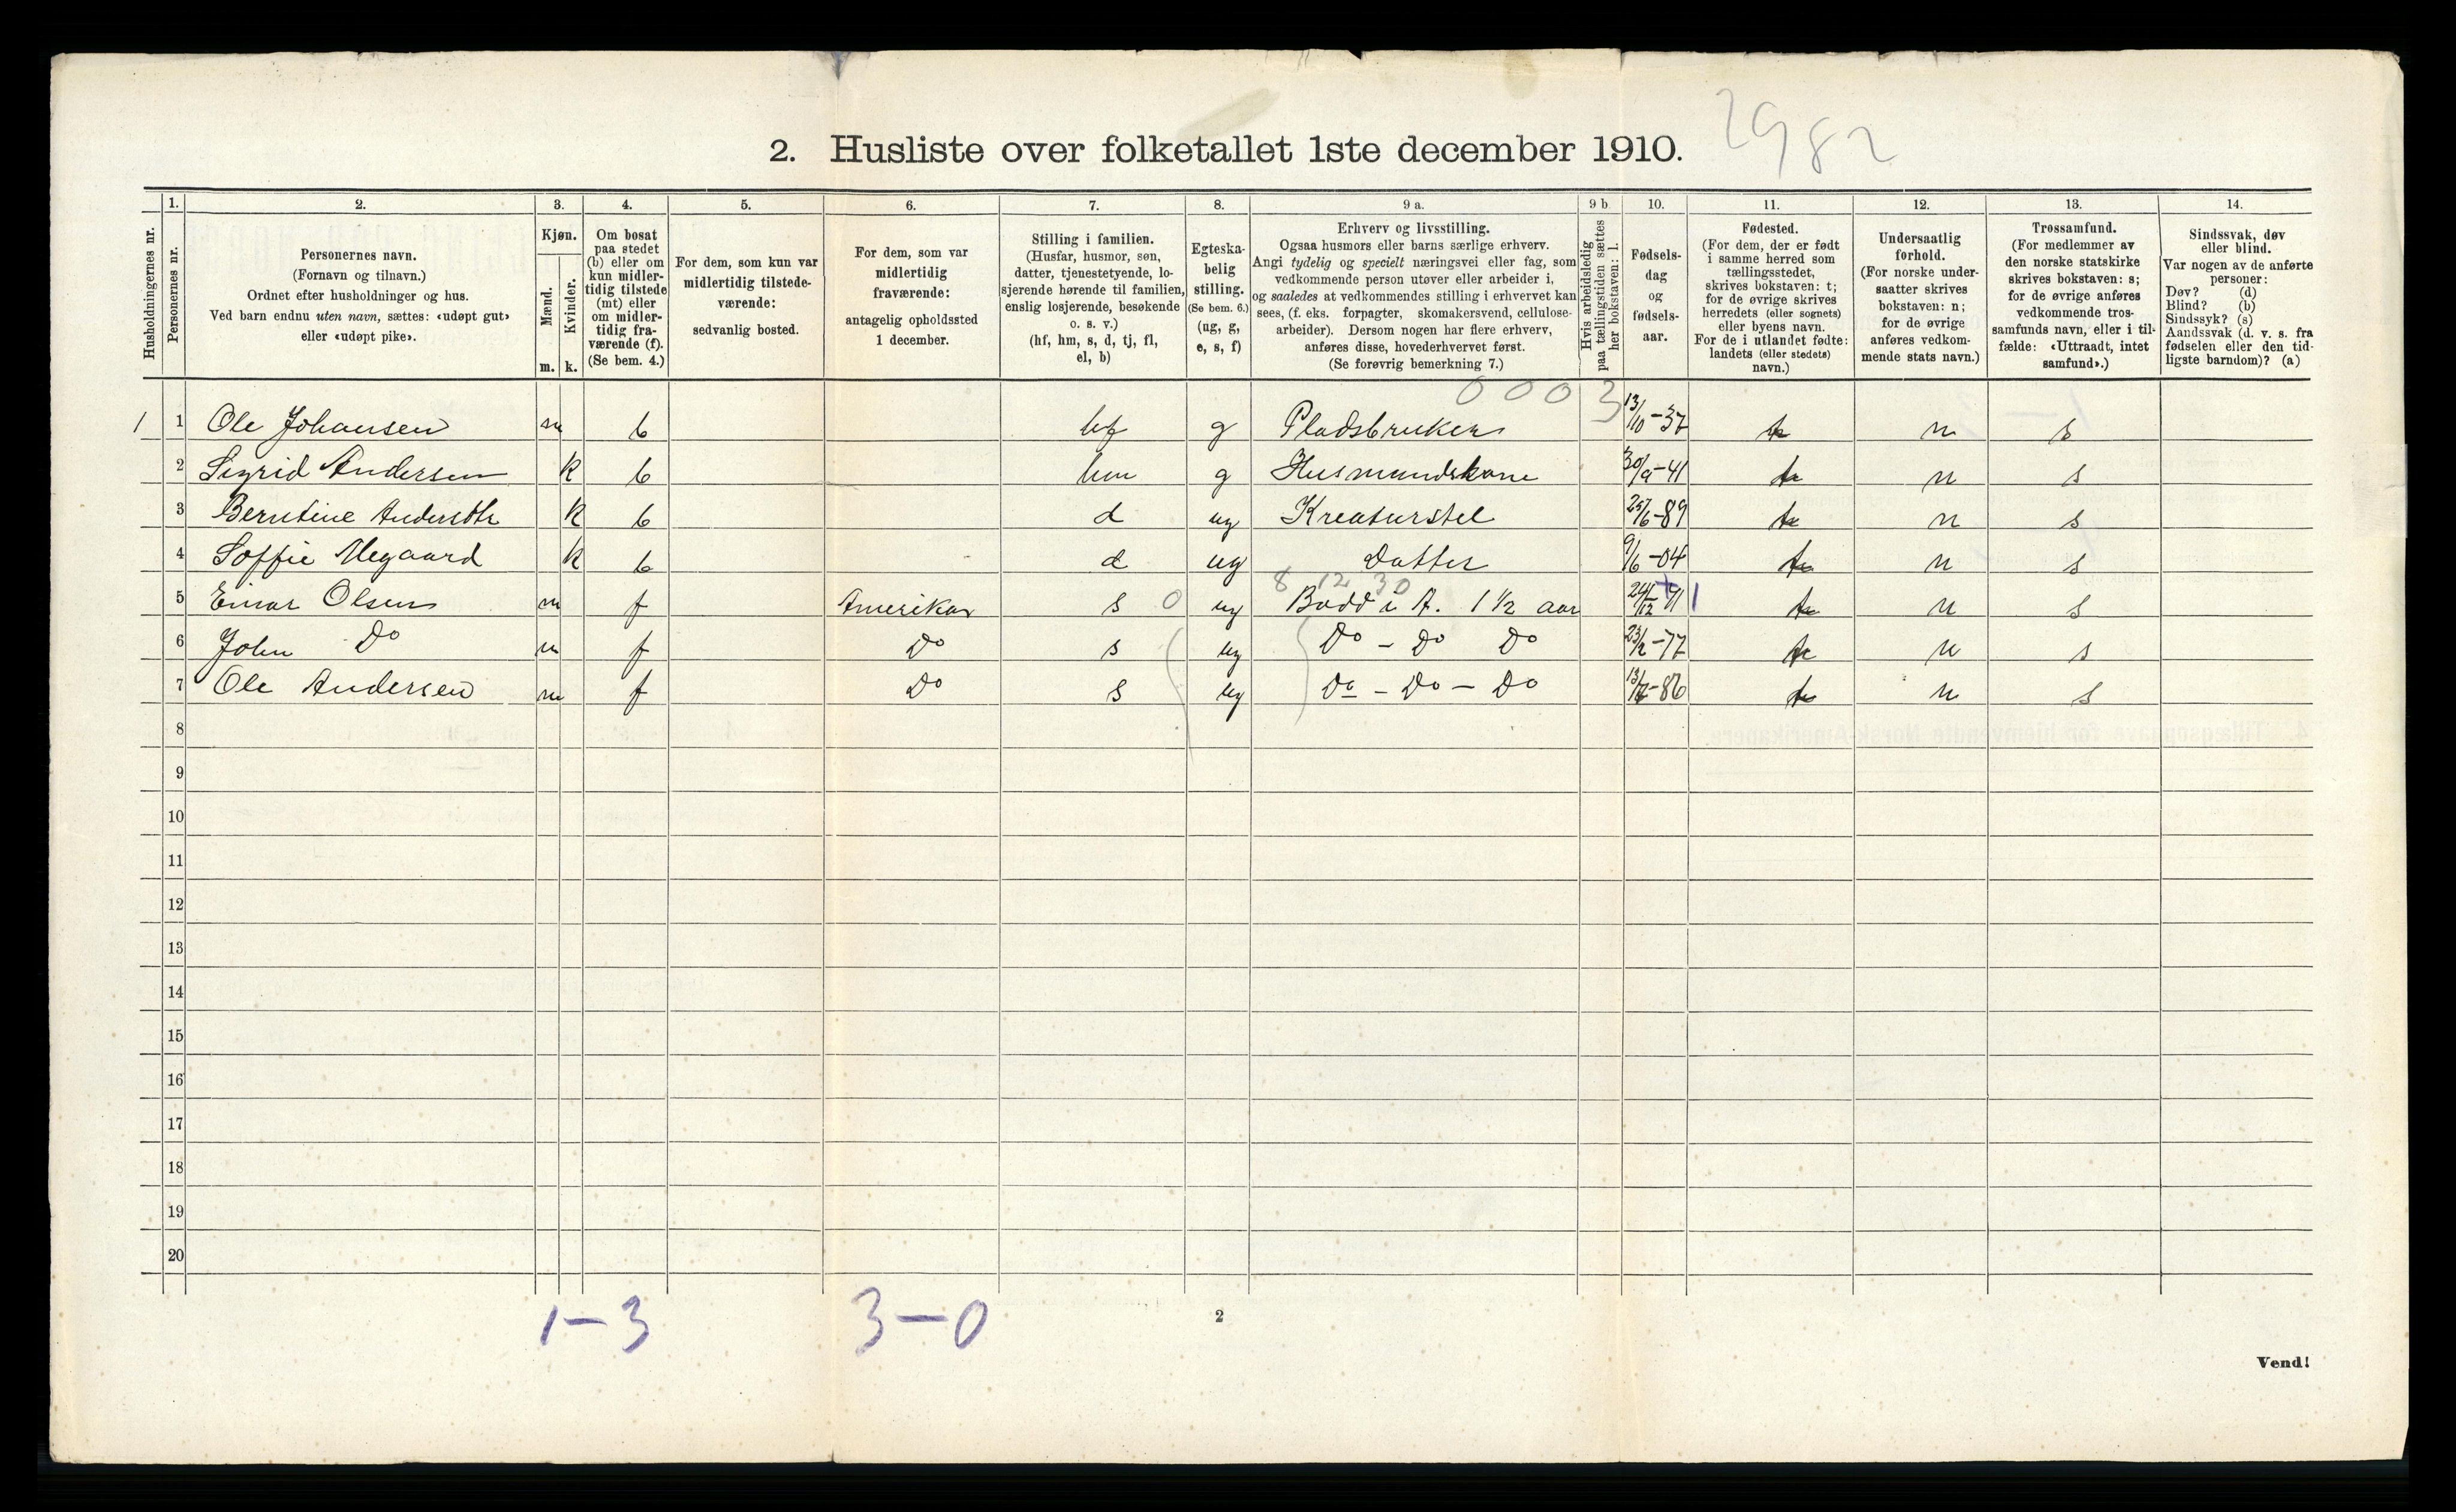 2. Husliste over folketallet 1ste december 1910. 2982
1. 2. 3. 4. 5. 6. 7. 8. 9 a. 9 b. 10. 11. 12. 13. 14.
Husholdningernes nr.
Personernes nr.
Personernes navn.
(Fornavn og tilnavn.)
Ordnet efter husholdninger og hus.
Ved barn endnu uten navn, sættes: «udøpt gut»
eller «udøpt pike».
Kjøn.
Mænd.
Kvinder.
m. k.
Om bosat
paa stedet
(b) eller om
kun midler-
tidig tilstede
(mt) eller
om midler-
tidig fra-
værende (f).
(Se bem. 4.)
For dem, som kun var
midlertidig tilstede-
værende:
sedvanlig bosted.
For dem, som var
midlertidig
fraværende:
antagelig opholdssted
1 december.
Stilling i familien.
(Husfar, husmor, søn,
datter, tjenestetyende, lo-
sjerende hørende til familien,
enslig losjerende, besøkende
o. s. v.)
(hf, hm, s, d, tj, fl,
el, b)
Egteska-
belig
stilling.
(Se bem. 6.)
(ug, g,
e, s, f)
Erhverv og livsstilling.
Ogsaa husmors eller barns særlige erhverv.
Angi tydelig og specielt næringsvei eller fag, som
vedkommende person utøver eller arbeider i,
og saaledes at vedkommendes stilling i erhvervet kan
sees, (f. eks. forpagter, skomakersvend, cellulose-
arbeider). Dersom nogen har flere erhverv,
anføres disse, hovederhvervet først.
(Se forøvrig bemerkning 7.)
Hvis arbeidsledig
paa tællingstiden sættes
her bokstaven: l.
Fødsels-
dag
og
fødsels-
aar.
Fødested.
(For dem, der er født
i samme herred som
tællingsstedet,
skrives bokstaven: t;
for de øvrige skrives
herredets (eller sognets)
eller byens navn.
For de i utlandet fødte:
landets (eller stedets)
navn.)
Undersaatlig
forhold.
(For norske under-
saatter skrives
bokstaven: n;
for de øvrige
anføres vedkom-
mende stats navn.)
Trossamfund.
(For medlemmer av
den norske statskirke
skrives bokstaven: s;
for de øvrige anføres
vedkommende tros-
samfunds navn, eller i til-
fælde: «Uttraadt, intet
samfund».)
Sindssvak, døv
eller blind.
Var nogen av de anførte
personer:
Døv? (d)
Blind? (b)
Sindssyk? (s)
Aandssvak (d. v. s. fra
fødselen eller den tid-
ligste barndom)? (a)
000 3
1 1 Ole Johansen m b hf g Pladsbruker 13/10-37 t n s
2 Sigrid Andersen k b hm g Husmandskone 30/9-41 t n s
3 Berntine Andersdtr k b d ug Kreaturstel 25/6-89 t n s
4 Soffie Megaard k b d ug Datter 9/6-04 t n s
8 12 30
5 Einar Olsen m f Amerika s 0 ug Bodd i A. 1 1/2 aar 24/12 91 t n s
6 John Do m f Do s ug Do - Do Do 23/2-77 t n s
7 Ole Andersen m f Do s ug Do - Do - Do 86 t n s
8
9
10
11
12
13
14
15
16
17
18
19
20
1-3 3-0
2
Vend!